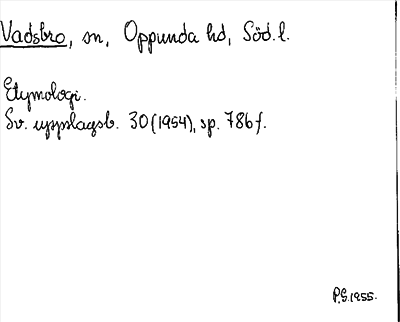 Vadsbro, sn, Oppunda hd, Söd. l.
Etymologi.
Sv. uppslagsb. 30 (1954), sp. 786 f.
P.G. 1955.